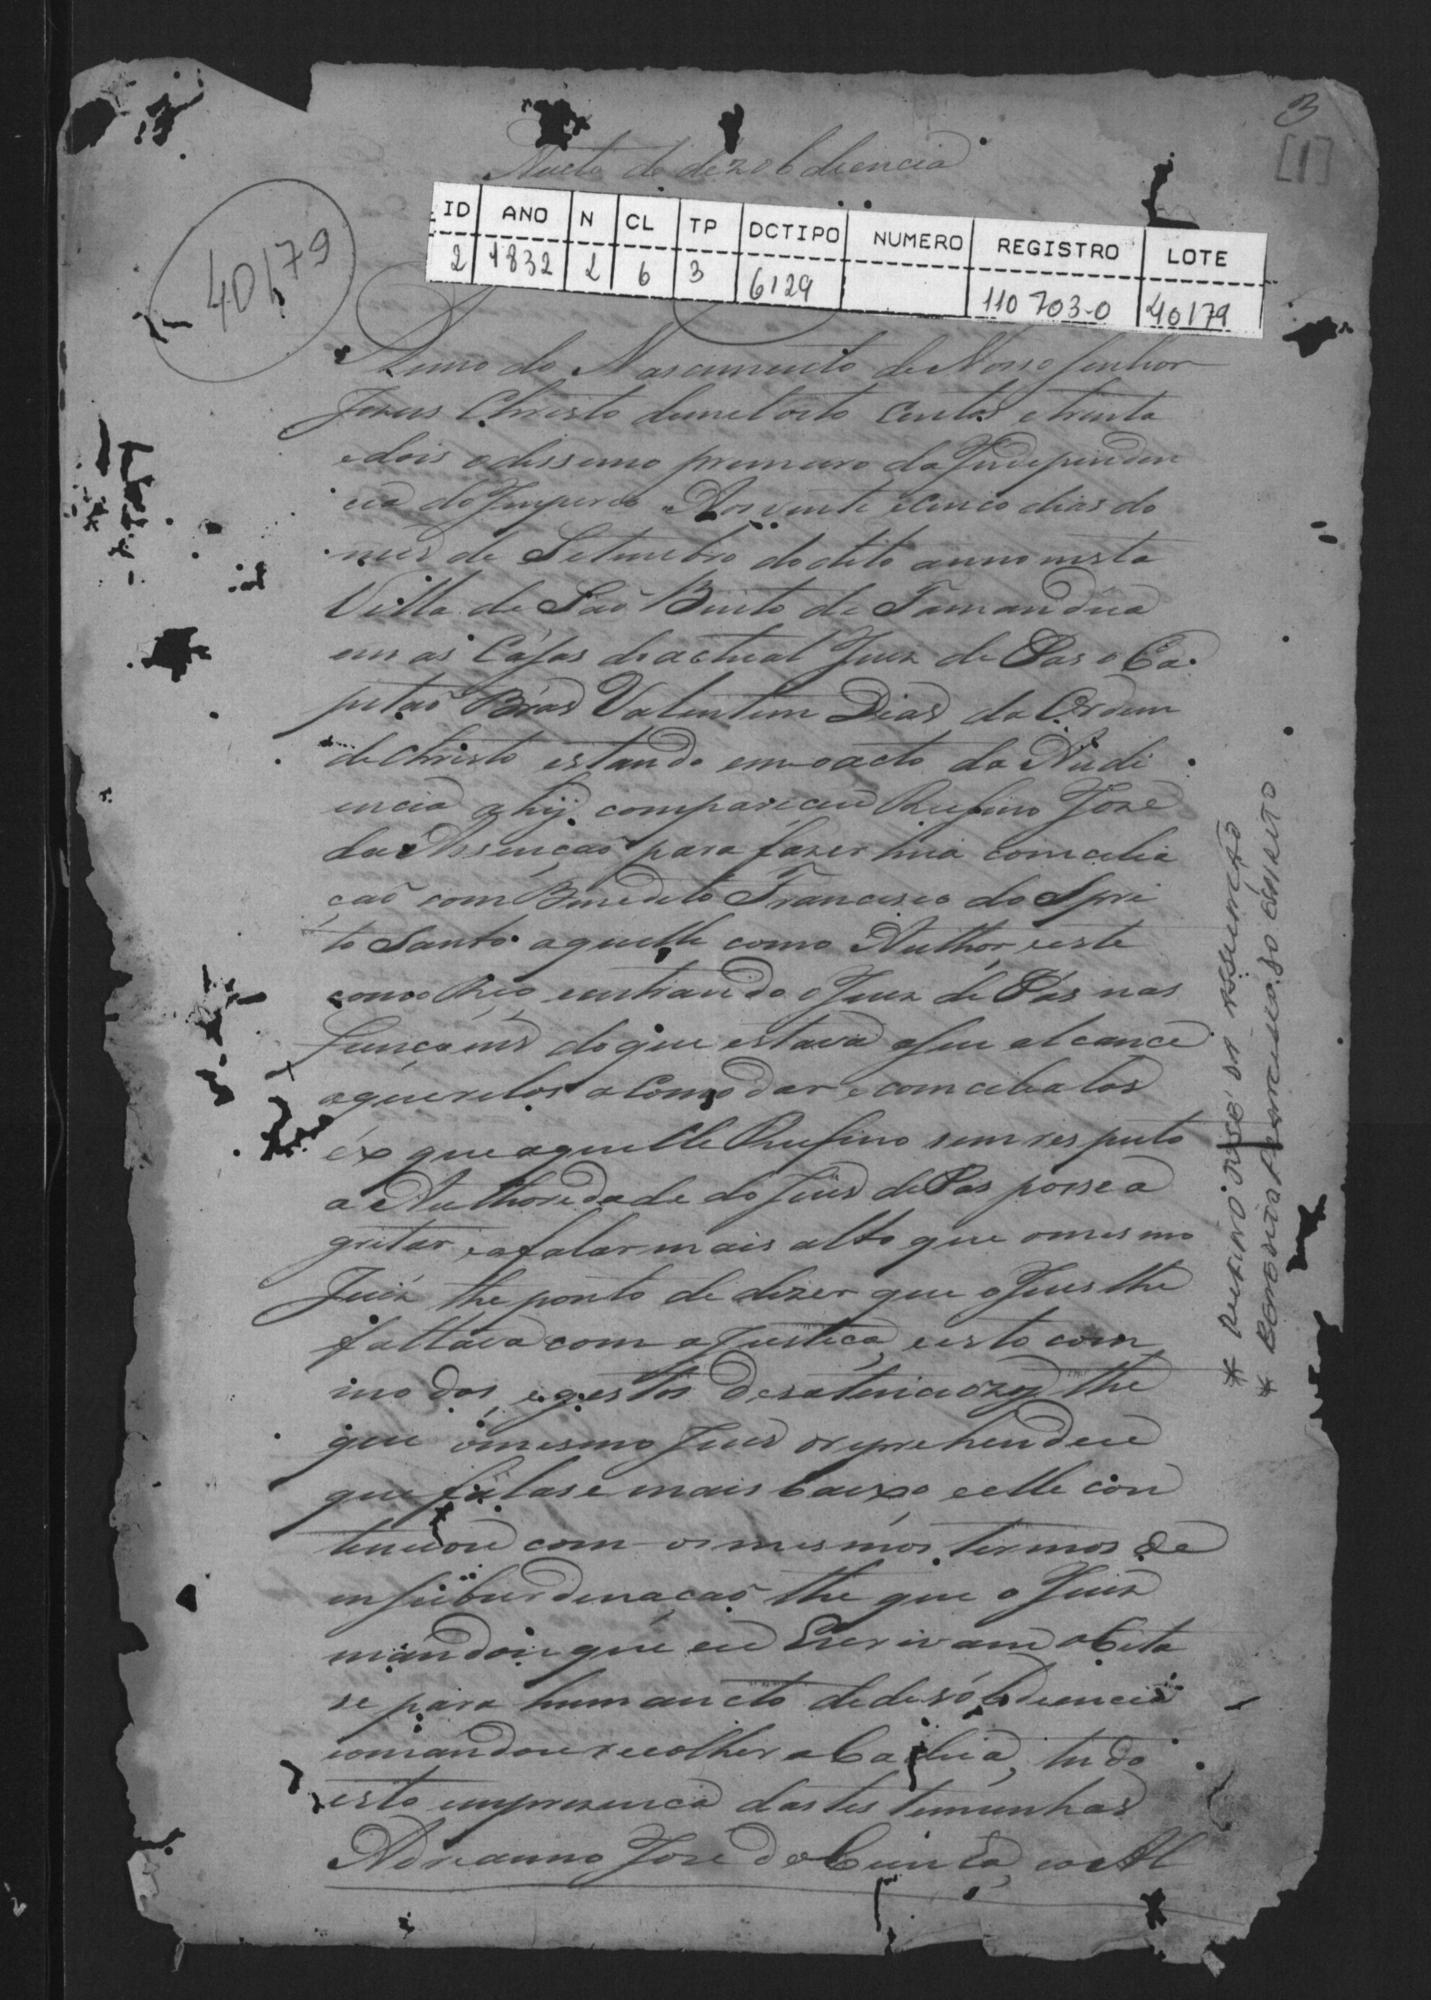 3
[1]
Aucto de dezobdiencia
40179
ID ANO N CL TP DCTIPO NUMERO REGISTRO LOTE
2 1832 2 6 3 6129 110703-0 40179
Anno do Nascimento de Nosso Senhor
Jezus Christo de mil oito centos e trinta
e dois odissimo primeiro da Independen
cia do Imperio Aos vinte e cinco dias do
mes de Setembro do dito anno nesta
Villa de Saõ Bento de Tamanduá
em as Cazas do actual Juiz de Pas o Ca
pitaõ Brás Valentim Dias da Ordem
de Christo estando em oacto da Audi
encia ahij compareceu Rufino Jozé
da Assençaõ para fazer huã comcelia
caõ com Benedito Francisco do Spri
to Santo aquelle como Author, e este
como Reo, e entrando o Juiz de Pás nas
funcoens do que estava aseu alcance
aquerelos acomodar e comcelialos
éx que aquelle Rufino sem respeito
a Authoredade do Juis de Pas posse a
gritar, e afalar mais alto que omesmo
Juiz the ponto de dizer que o Juis lhe
faltava com a Justica, e isto com
modos, e gestos desatenciozos the
que omesmo Juis oreprehendeu
que falase mais baixo e elle con
tenuou com os mesmos termos de
insuburdenacaõ the que o Juiz
mandou que eu Escrivam o Cita
se para hum aucto de desobdiencia
e omandou recolher a Cadeia, tudo
isto emprezenca das testemunhas
Adreanno José da Cunha, e o Al
* RUFINO JOSÉ DA ASSUNÇÃO
* BENEDITO FRANCISCO DO ESPÍRITO